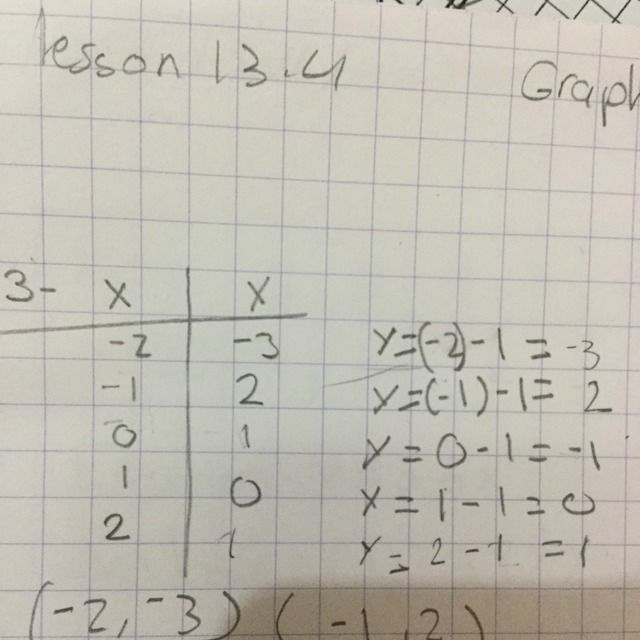 lesson 13.4 Graph
3- x | x
-2 | -3 y=(-2)-1 = -3
-1 | 2 y=(-1)-1= 2
0 | 1 y = 0-1= -1
1 | 0 x = 1-1=0
2 | 1 y = 2-1 =1
(-2,-3) (-1,2)